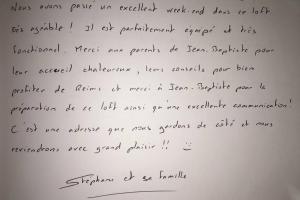 Nous avons passé un excellent week-end dans ce loft
très agréable ! Il est parfaitement équipé et très
fonctionnel. Merci aux parents de Jean-Baptiste pour
leur accueil chaleureux, leurs conseils pour bien
profiter de Reims et merci à Jean-Baptiste pour la
préparation de ce loft ainsi qu'une excellente communication!
C'est une adresse que nous gardons de côté et nous
reviendrons avec grand plaisir !! :)
Stéphane et sa famille